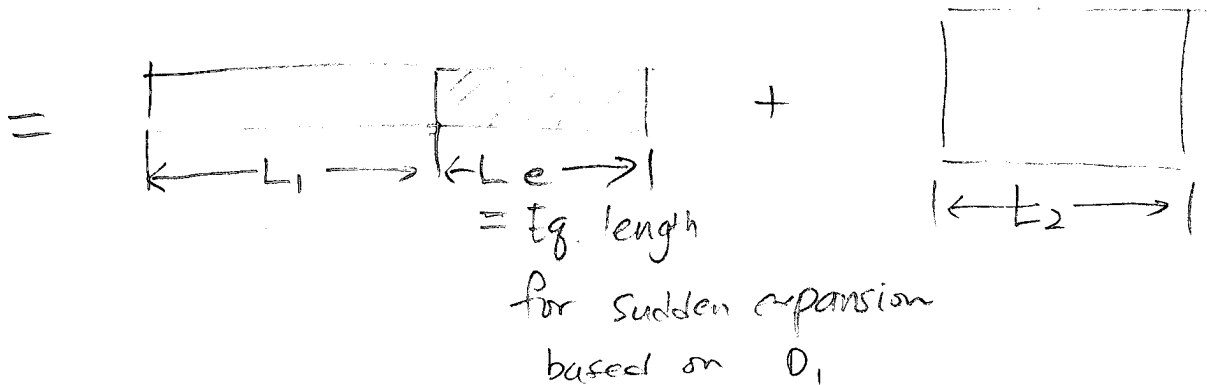 = +
L₁ L e L₂
= Eq. length
for sudden expansion
based on D₁